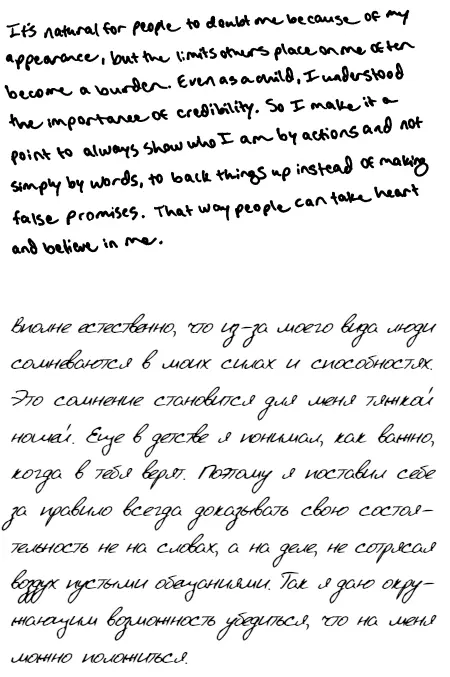 It's natural for people to doubt me because of my
appearance, but the limits others place on me often
become a burden. Even as a child, I understood
the importance of credibility. So I make it a
point to always show who I am by actions and not
simply by words, to back things up instead of making
false promises. That way people can take heart
and believe in me.
Вполне естественно, что из-за моего вида люди
сомневаются в моих силах и способностях.
Это сомнение становится для меня тяжкой
ношей. Еще в детстве я понимал, как важно,
когда в тебя верят. Поэтому я поставил себе
за правило всегда доказывать свою состоя-
тельность не на словах, а на деле, не сотрясая
воздух пустыми обещаниями. Так я даю окру-
жающим возможность убедиться, что на меня
можно положиться.